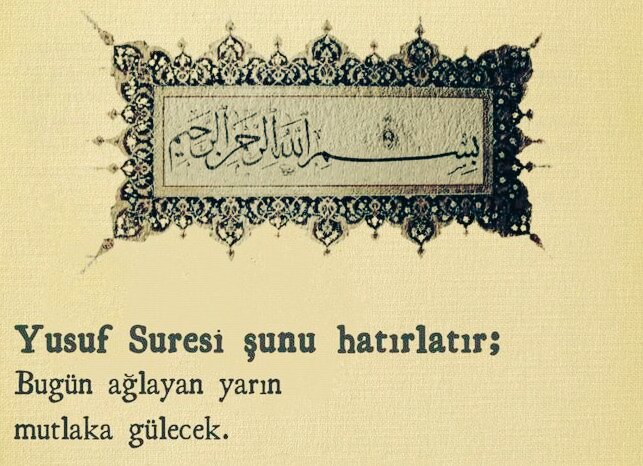 بسم الله الرحمن الرحيم
Yusuf Suresi şunu hatırlatır;
Bugün ağlayan yarın
mutlaka gülecek.